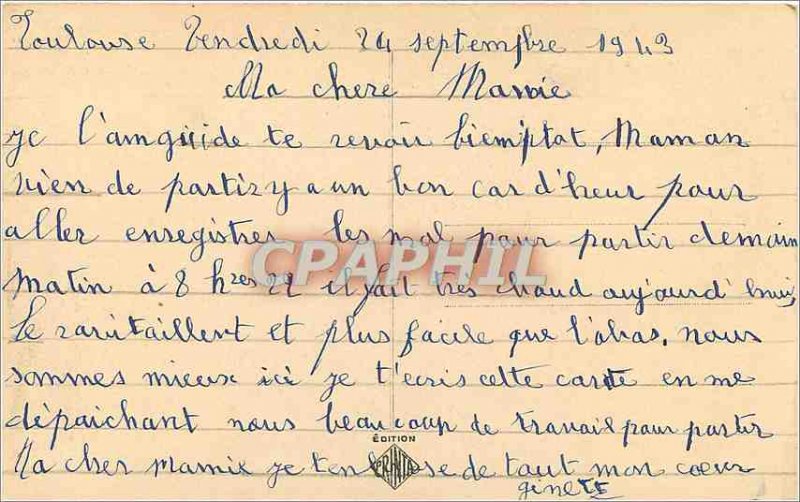 Toulouse Vendredi 24 septembre 1943
Ma chere Mamie
je l'anguide te revoir bientpot, Maman
vien de partir y a un bon car d'heur pour
aller enregistrer les mal pour partir demain
matin à 8 hres 22 il fait très chaud aujourd'hui,
le ravitaillent et plus facile que l'abas, nous
sommes mieux ici je t'ecris cette carte en me
dépaichant nous beaucoup de travail pour partir
Ma cher mamie je t'embrasse de tout mon coeur
ginette
CPAPHIL
ÉDITION